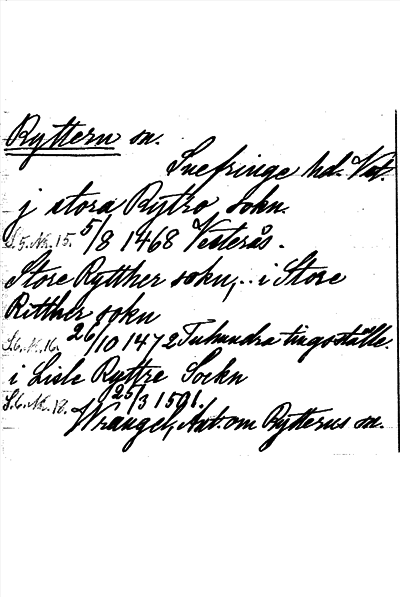 Ryttern sn.
Snefringe hd. Vst.
j stora Rytro sokn.
S. 5. Nr. 15. 5/8 1468 Vesterås.
Store Rytther sokn, .. i Store
Ritther sokn
S. 6. N. 16. 26/10 1472 Tuhundra tingsställe.
i Lisle Ryttre Sockn
S. 6. Nr. 18. 25/3 1501.
Wrangel, Ant. om Rytterns sn.